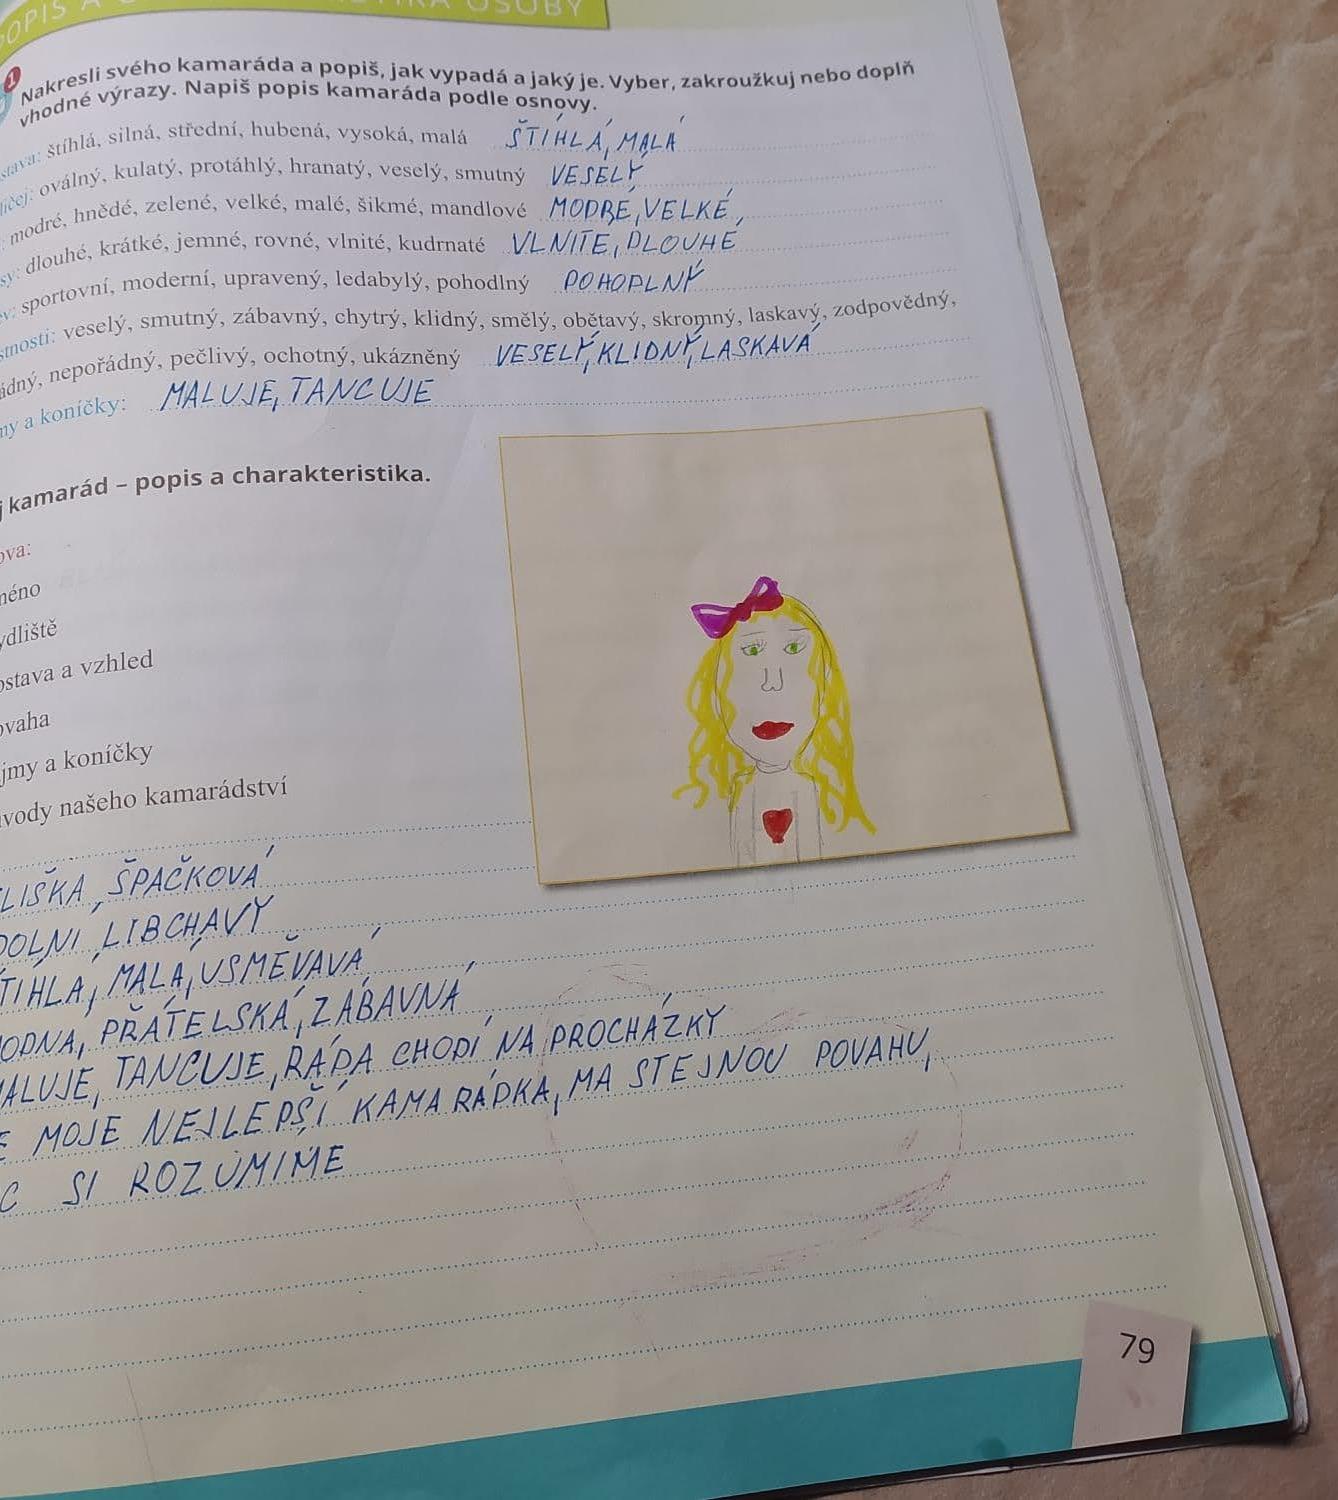 POPIS A OSOBY
1 Nakresli svého kamaráda a popiš, jak vypadá a jaký je. Vyber, zakroužkuj nebo doplň
vhodné výrazy. Napiš popis kamaráda podle osnovy.
stava: štíhlá, silná, střední, hubená, vysoká, malá ŠTÍHLÁ, MALÁ
ličej: oválný, kulatý, protáhlý, hranatý, veselý, smutný VESELÝ
: modré, hnědé, zelené, velké, malé, šikmé, mandlové MODRÉ, VELKÉ,
sy: dlouhé, krátké, jemné, rovné, vlnité, kudrnaté VLNITÉ, DLOUHÉ
v: sportovní, moderní, upravený, ledabylý, pohodlný POHODLNÝ
stnosti: veselý, smutný, zábavný, chytrý, klidný, smělý, obětavý, skromný, laskavý, zodpovědný,
ádný, nepořádný, pečlivý, ochotný, ukázněný VESELÝ, KLIDNÝ, LASKAVÁ
my a koníčky: MALUJE, TANCUJE
j kamarád – popis a charakteristika.
ova:
méno
ydliště
ostava a vzhled
ovaha
jmy a koníčky
vody našeho kamarádství
LIŠKA, ŠPAČKOVÁ
DOLNÍ, LIBCHAVY
TÍHLÁ, MALÁ, USMĚVAVÁ
ODNÁ, PŘÁTELSKÁ, ZÁBAVNÁ
ALUJE, TANCUJE, RÁDA CHODÍ NA PROCHÁZKY
E MOJE NEJLEPŠÍ KAMARÁDKA, MÁ STEJNOU POVAHU,
C SI ROZUMÍME
79